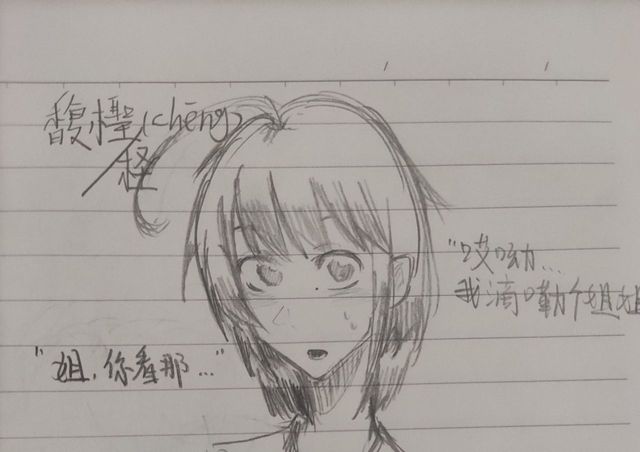 馥檉(chēng)
/柽
"哎呦...
我滴嘞个姐姐
"姐,你看那..."